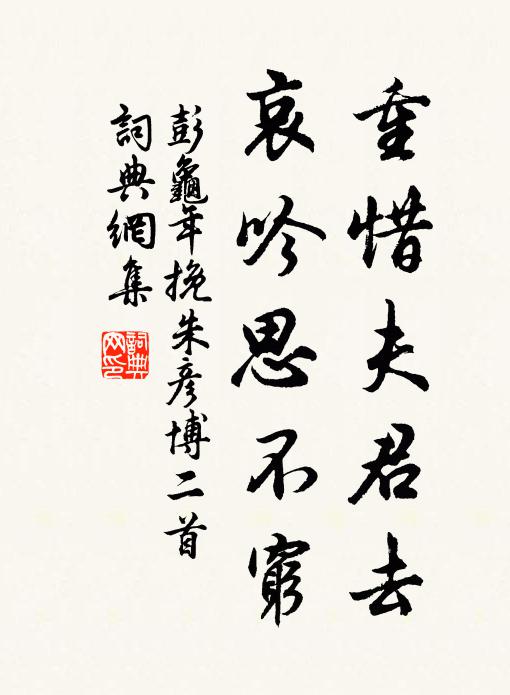 重惜夫君去
哀吟思不窮
彭龜年挽朱彥博二首
詞典網集
詞典網印